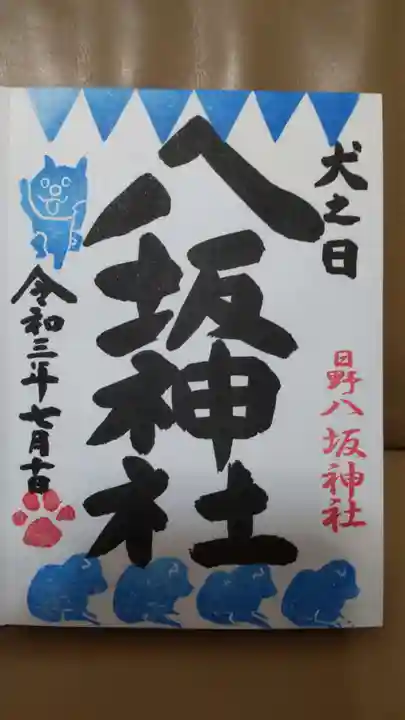 犬之日
日野八坂神社
八坂神社
令和三年七月十日